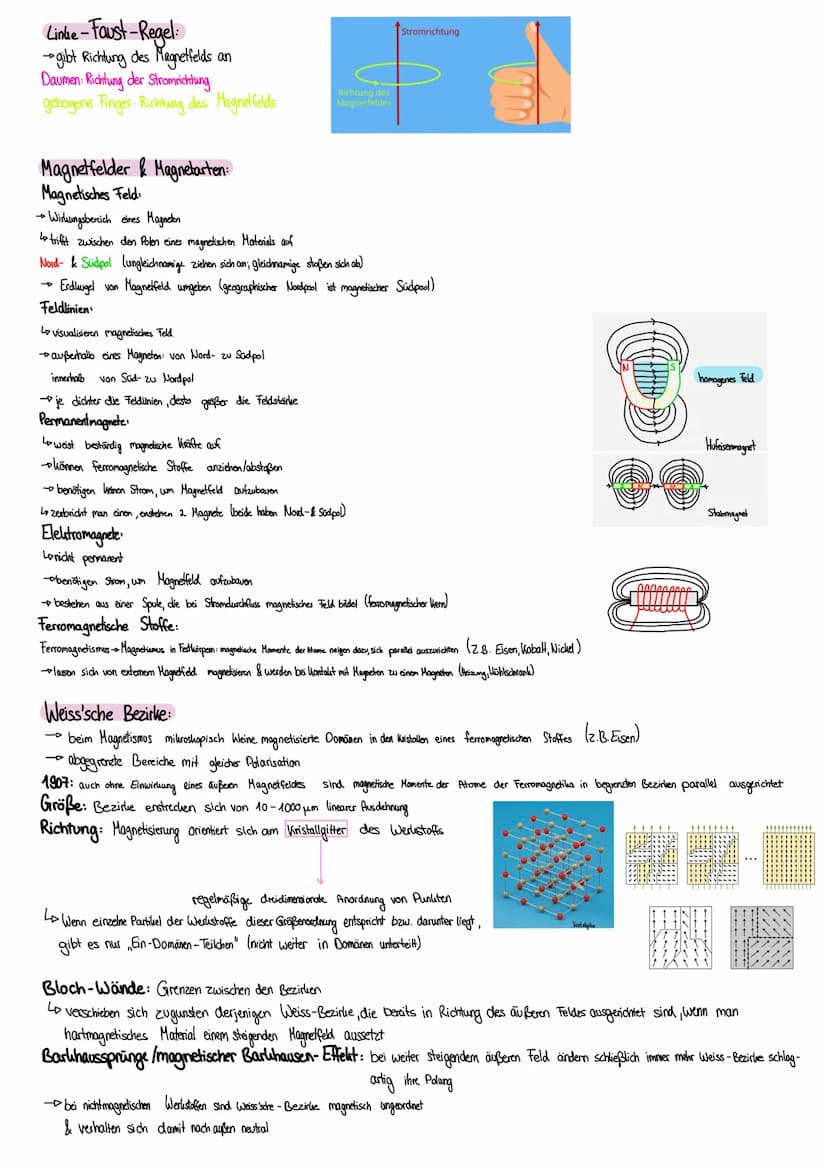 Linke-Faust-Regel:
→ gibt Richtung des Magnetfelds an
Daumen: Richtung der Stromrichtung
gebogene Finger: Richtung des Magnetfelds
Stromrichtung
Richtung des
Magnetfeldes
Magnetfelder & Magnetarten:
Magnetisches Feld:
→ Wirkungsbereich eines Magneten
↳ tritt zwischen den Polen eines magnetischen Materials auf
Nord- & Südpol (ungleichnamige ziehen sich an; gleichnamige stoßen sich ab)
→ Erdkugel von Magnetfeld umgeben (geographischer Nordpool ist magnetischer Südpool)
Feldlinien:
↳ visualisieren magnetisches Feld
→ außerhalb eines Magneten: von Nord- zu Südpol
innerhalb von Süd- zu Nordpol
→ je dichter die Feldlinien, desto größer die Feldstärke
N S
homogenes Feld
Hufeisenmagnet
Permanentmagnete:
↳ weist beständig magnetische Kräfte auf
→ können ferromagnetische Stoffe anziehen/abstoßen
→ benötigen keinen Strom, um Magnetfeld aufzubauen
↳ zerbricht man einen, enstehen 2 Magnete (beide haben Nord- & Südpol)
Stabmagnet
Elektromagnete:
↳ nicht permanent
→ benötigen Strom, um Magnetfeld aufzubauen
→ bestehen aus einer Spule, die bei Stromdurchfluss magnetisches Feld bildet (ferromagnetischer Kern)
Ferromagnetische Stoffe:
Ferromagnetismus → Magnetismus in Festkörpern: magnetische Momente der Atome neigen dazu, sich parallel auszurichten (z.B. Eisen, Kobalt, Nickel)
→ lassen sich von externem Magnetfeld magnetisieren & werden bei Kontakt mit Magneten zu einem Magneten (Heizung, Kühlschrank)
Weiss'sche Bezirke:
→ beim Magnetismos mikroskopisch kleine magnetisierte Domänen in den Kristallen eines ferromagnetischen Stoffes (z.B. Eisen)
→ abgegrenzte Bereiche mit gleicher Polarisation
1907: auch ohne Einwirkung eines äußeren Magnetfeldes sind magnetische Momente der Atome der Ferromagnetika in begrenzten Bezirken parallel ausgerichtet
Größe: Bezirke erstrecken sich von 10-1000 µm linearer Ausdehnung
Richtung: Magnetisierung orientiert sich am Kristallgitter des Werkstoffs
regelmäßige dreidimensionale Anordnung von Punkten
Kristallgitter
...
↳ Wenn einzelne Partikel der Werkstoffe dieser Größenordnung entspricht bzw. darunter liegt,
gibt es nur „Ein-Domänen-Teilchen" (nicht weiter in Domänen unterteilt)
Bloch-Wände: Grenzen zwischen den Bezirken
↳ verschieben sich zugunsten derjenigen Weiss-Bezirke, die bereits in Richtung des äußeren Feldes ausgerichtet sind, wenn man
hartmagnetisches Material einem steigenden Magnetfeld aussetzt
Barkhaussprünge/magnetischer Barkhausen-Effekt: bei weiter steigendem äußeren Feld ändern schließlich immer mehr Weiss-Bezirke schlag-
artig ihre Polung
→ bei nichtmagnetischen Werkstoffen sind Weiss'sche-Bezirke magnetisch ungeordnet
& verhalten sich damit nach außen neutral